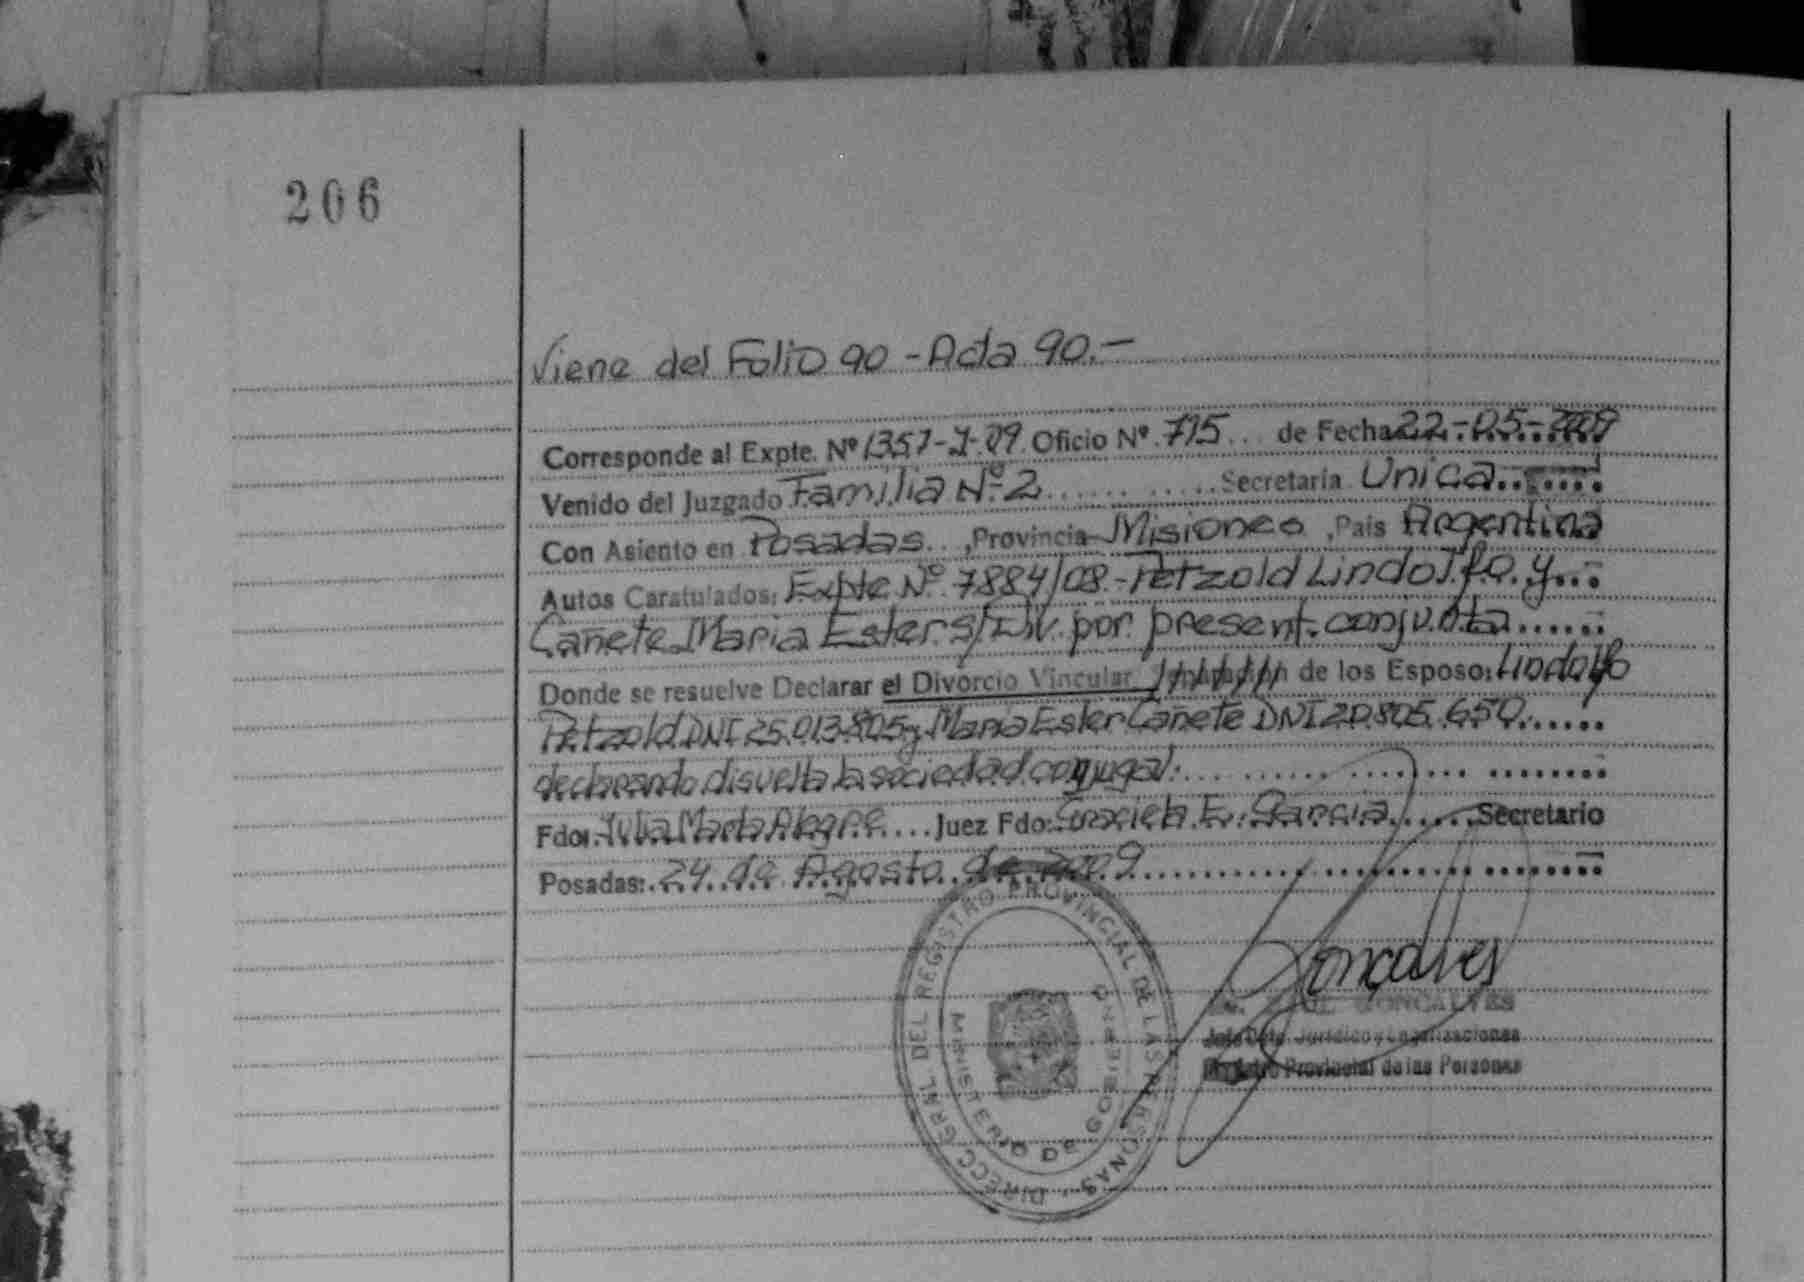 206
Viene del Folio 90 - Acta 90.-
Corresponde al Expte. Nº 1351-J-09 Oficio Nº 715 de Fecha 22-05-2009
Venido del Juzgado Familia Nº 2 Secretaria Unica
Con Asiento en Posadas, Provincia Misiones, Pais Argentina
Autos Caratulados: Expte Nº 7884/08 - Petzold Lindolfo y
Cañete Maria Ester s/Div. por present. conjunta
Donde se resuelve Declarar el Divorcio Vincular de los Esposo: Lindolfo
Petzold DNI 25.013.805 y Maria Ester Cañete DNI 20.805.650
declarando disuelta la sociedad conyugal.
Fdo: Julia Marta Alegre Juez Fdo: Graciela E. Garcia Secretario
Posadas: 24 de Agosto de 2009
Goncalves
GONCALVES
Jefe Dpto. Jurídico y Legalizaciones
Registro Provincial de las Personas
DIRECC. GRAL. DEL REGISTRO PROVINCIAL DE LAS PERSONAS
MINISTERIO DE GOBIERNO